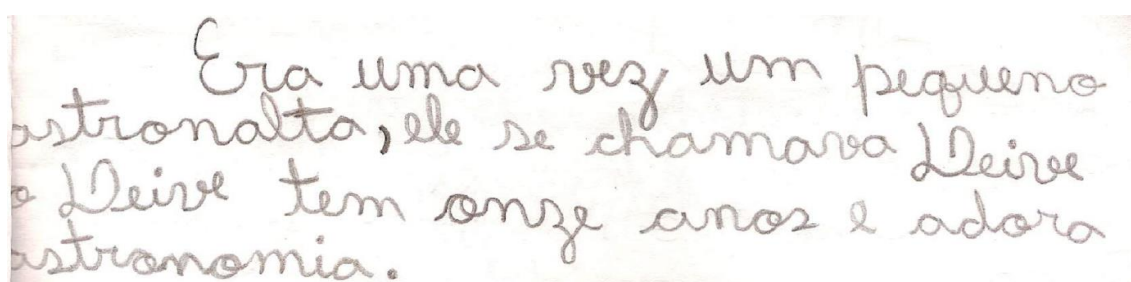 Era uma vez um pequeno
astronalta, ele se chamava Deive
o Deive tem onze anos e adora
astronomia.